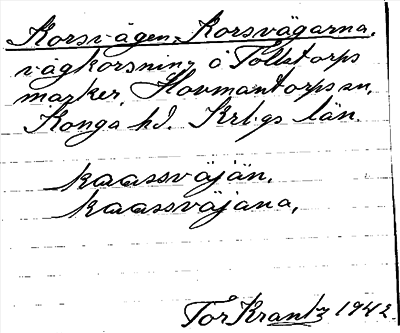 Korsvägen, Korsvägarna,
vägkorsning å Tollstorps
marker, Hovmantorps sn,
Konga hd. Krbgs län.
kaassväján,
kaassväjana,
Tor Krantz 1942.